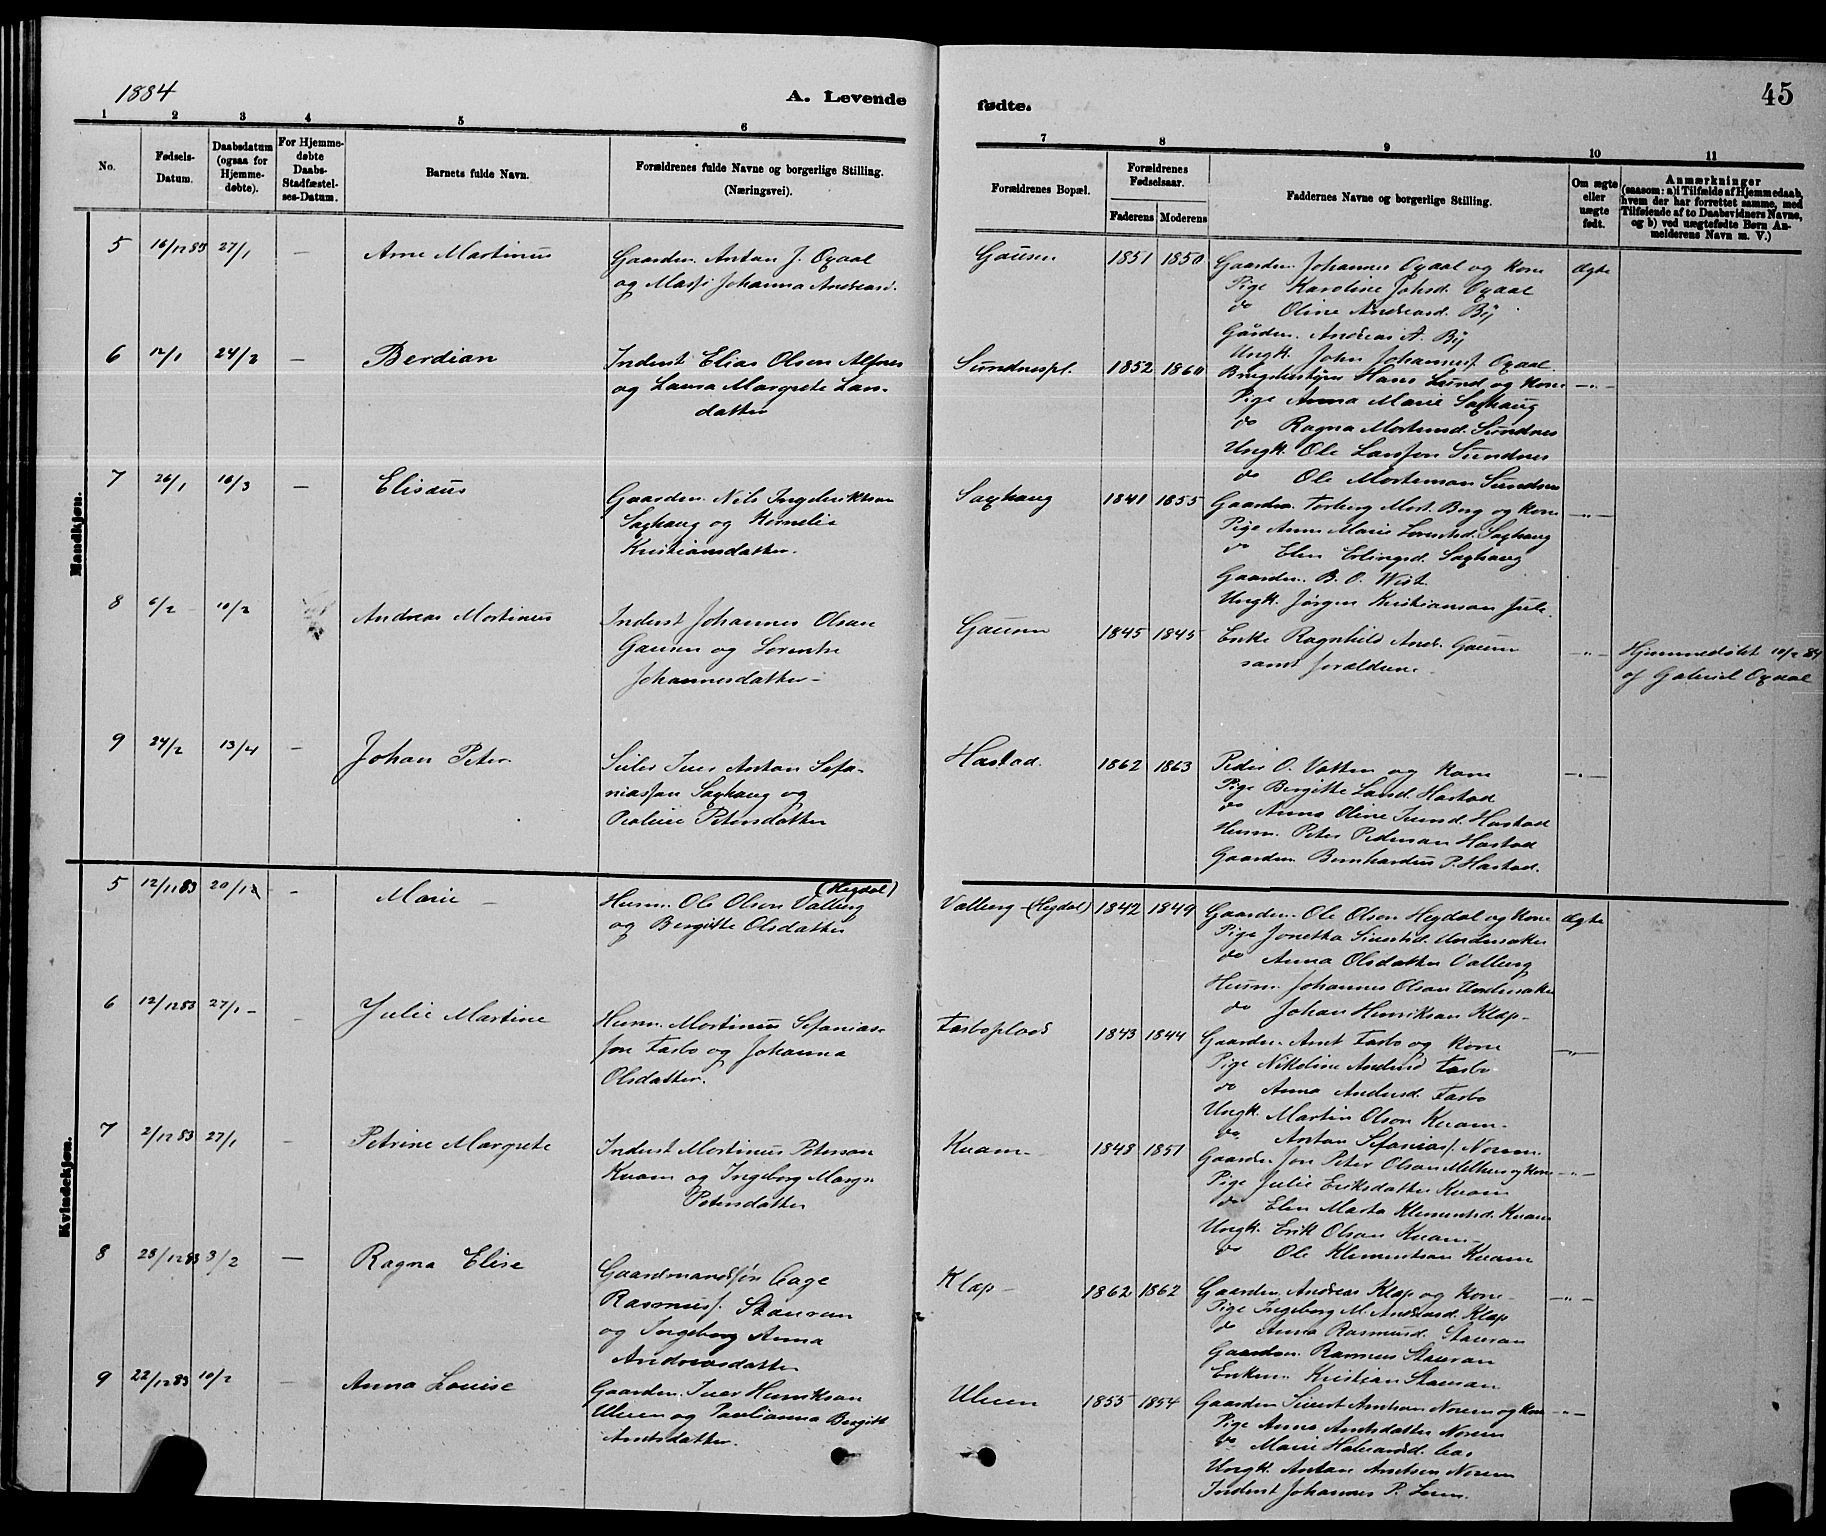 1884
A. Levende
fødte.
45
1 2 3 4 5 6 7 8 9 10 11
No.
Fødsels-Datum.
Daabsdatum (ogsaa for Hjemmedøbte).
For Hjemmedøbte Daabs-Stadfæstelses-Datum.
Barnets fulde Navn.
Forældrenes fulde Navne og borgerlige Stilling. (Næringsvei).
Forældrenes Bopæl.
Forældrenes Fødselsaar.
Faderens Moderens
Faddernes Navne og borgerlige Stilling.
Om ægte eller uægte født.
Anmærkninger
(saasom: a) i Tilfælde af Hjemmedaab, hvem der har forrettet samme, med Tilføiende af to Daabsvidners Navne, og b) ved uægtefødte Børn Anmelderens Navn m. V.)
Mandkjøn.
5 16/12 83 27/1 — Arne Martinus
Gaardm. Anton J. Oxaal
og Johanna Andreasd.
Gausen 1851 1850
Gaardm. Johannes Oxaal og Kone
Pige Karoline Johsd. Oxaal
do Oline Andreasd. By
Gårdm. Andreas A. By
Ungk. John Johannesf. Oxaal.
ægte
6 12/1 24/2 — Berdian
Inderst Elias Olsen Alfnes
og Laura Margrete Lars-
datter
Sundnespl. 1852 1860
Hans Lund og Kone
Pige Anna Marie Saxhaug
do Ragna Mortensd. Sundnes
Ungk. Ole Larsson Sundnes
do Ole Mortenson Sundnes
—"—
7 26/1 16/3 — Elisæus
Gaardm. Nils Ingebriktson
Saxhaug og Kornelia
Kristiansdatter.
Saxhaug 1841 1855
Gaardm. Torberg Mort. Berg og Kone
Pige Anne Marie Lorentsd. Saxhaug
do Elen Erlingsd. Saxhaug
Gaardm. B. O. Wist
Ungk. Jørgen Kristianson Jule.
—"—
8 6/2 10/2 Andreas Mortinus
Inderst Johannes Olsen
Gausen og Lorentse
Johannesdatter —
Gausen 1845 1845
Enke Ragnhild Andr. Gausen
samt forældrene.
—"—
Hjemmedøbt 10/2 84
af Gabriel Oxaal
9 24/2 13/4 — Johan Peter
Iver Anton Sefa-
niasson Saxhaug og
Petersdatter
Hastad. 1862 1863
Peder O. Vatten og Kone
Pige Birgitte Larsd. Hastad
do Anna Oline Hastad
Husm. Peter Pederson Hastad
Gaardm. Bernhardus P. Hastad.
—"—
Kvindekjøn.
5 12/11 83 20/1 — Marie —
(Hegdal)
Husm. Ole Olson Valberg
og Bergitte Olsdatter
Valberg (Hegdal) 1842 1849
Gaardm. Ole Olson Hegdal og Kone
Pige Jonetta Sivertsd. Undersaker
do Anna Olsdatter Valberg
Husm. Johannes Olson Undersaker
do Johan Henrikson Klap —
ægte
6 12/12 83 27/1 — Julie Martine
Husm. Mortinus Sefanias-
son Farbo og Johanna
Olsdatter.
Farboplads 1843 1844
Gaardm. Arnt Farbo og Kone
Pige Nikoline Farbo
do Anna Andersd. Farbo
Ungk. Martin Olson Kuam.
do Anton Sefaniasf. Norem
—"—
7 2/12 83 27/1 — Petrine Margrete
Inderst Mortinus Peterson
Kuam og Ingeborg Margr.
Petersdatter
Kuam 1848 1851
Gaardm. Jon Peter Olson Melhus og Kone
Pige Julie Eriksdatter Kuam
do Elen Marta Klementsd. Kuam
Ungk. Erik Olson Kuam —
do Ole Klementson Kuam
—"—
8 28/12 83 3/2 — Ragna Elise
Gaardmandssøn Aage
Rasmusf. Stauran
og Ingeborg Anna
Andreasdatter
Klap — 1862 1862
Gaardm. Andreas Klap og Kone —
Pige Ingeborg M. Andreasd. Klap
do Anna Rasmusd. Stauran
Gaardm. Rasmus Stauran
Enkem. Kristian Stauran
—"—
9 22/12 83 10/2 — Anna Louise
Gaardm. Iver Henrikson
Ulven og Paulianna Bergitt
Arntsdatter.
Ulven 1855 1854
Gaardm. Sivert Arntson Norem og Kone
Pige Anna Arntsdatter Norem
do Marie Aas
Ungk. Anton Arntsen Norem
Inderst Johannes P.
—"—